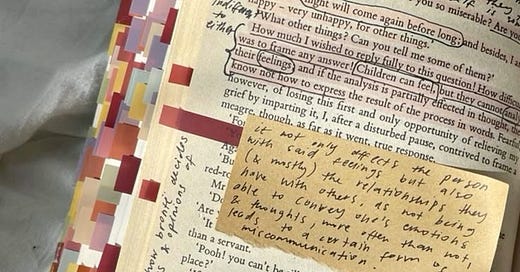 indifferent to either
night will come again before long; and besides, I a
happy – very unhappy, for other things.'
'What other things? Can you tell me some of them?'
How much I wished to reply fully to this question! How difficu
was to frame any answer! Children can feel, but they cannot anal
their feelings; and if the analysis is partially effected in thought, th
know not how to express the result of the process in words. Fearful
however, of losing this first and only opportunity of relieving my
grief by imparting it, I, after a disturbed pause, contrived to frame a
meagre, though, as far as it went, true response.
'For
'Y
'But
red-r
'Mi
'Are yo
than a servant.
'Pooh! you can't be sill
place?'
it not only affects the person
with said feelings but also
(& mostly) the relationships they
have with others, as not being
able to convey one's emotions
& thoughts, more often than not,
leads to a certain form of
miscommunication
how brontë decides
& opinions of